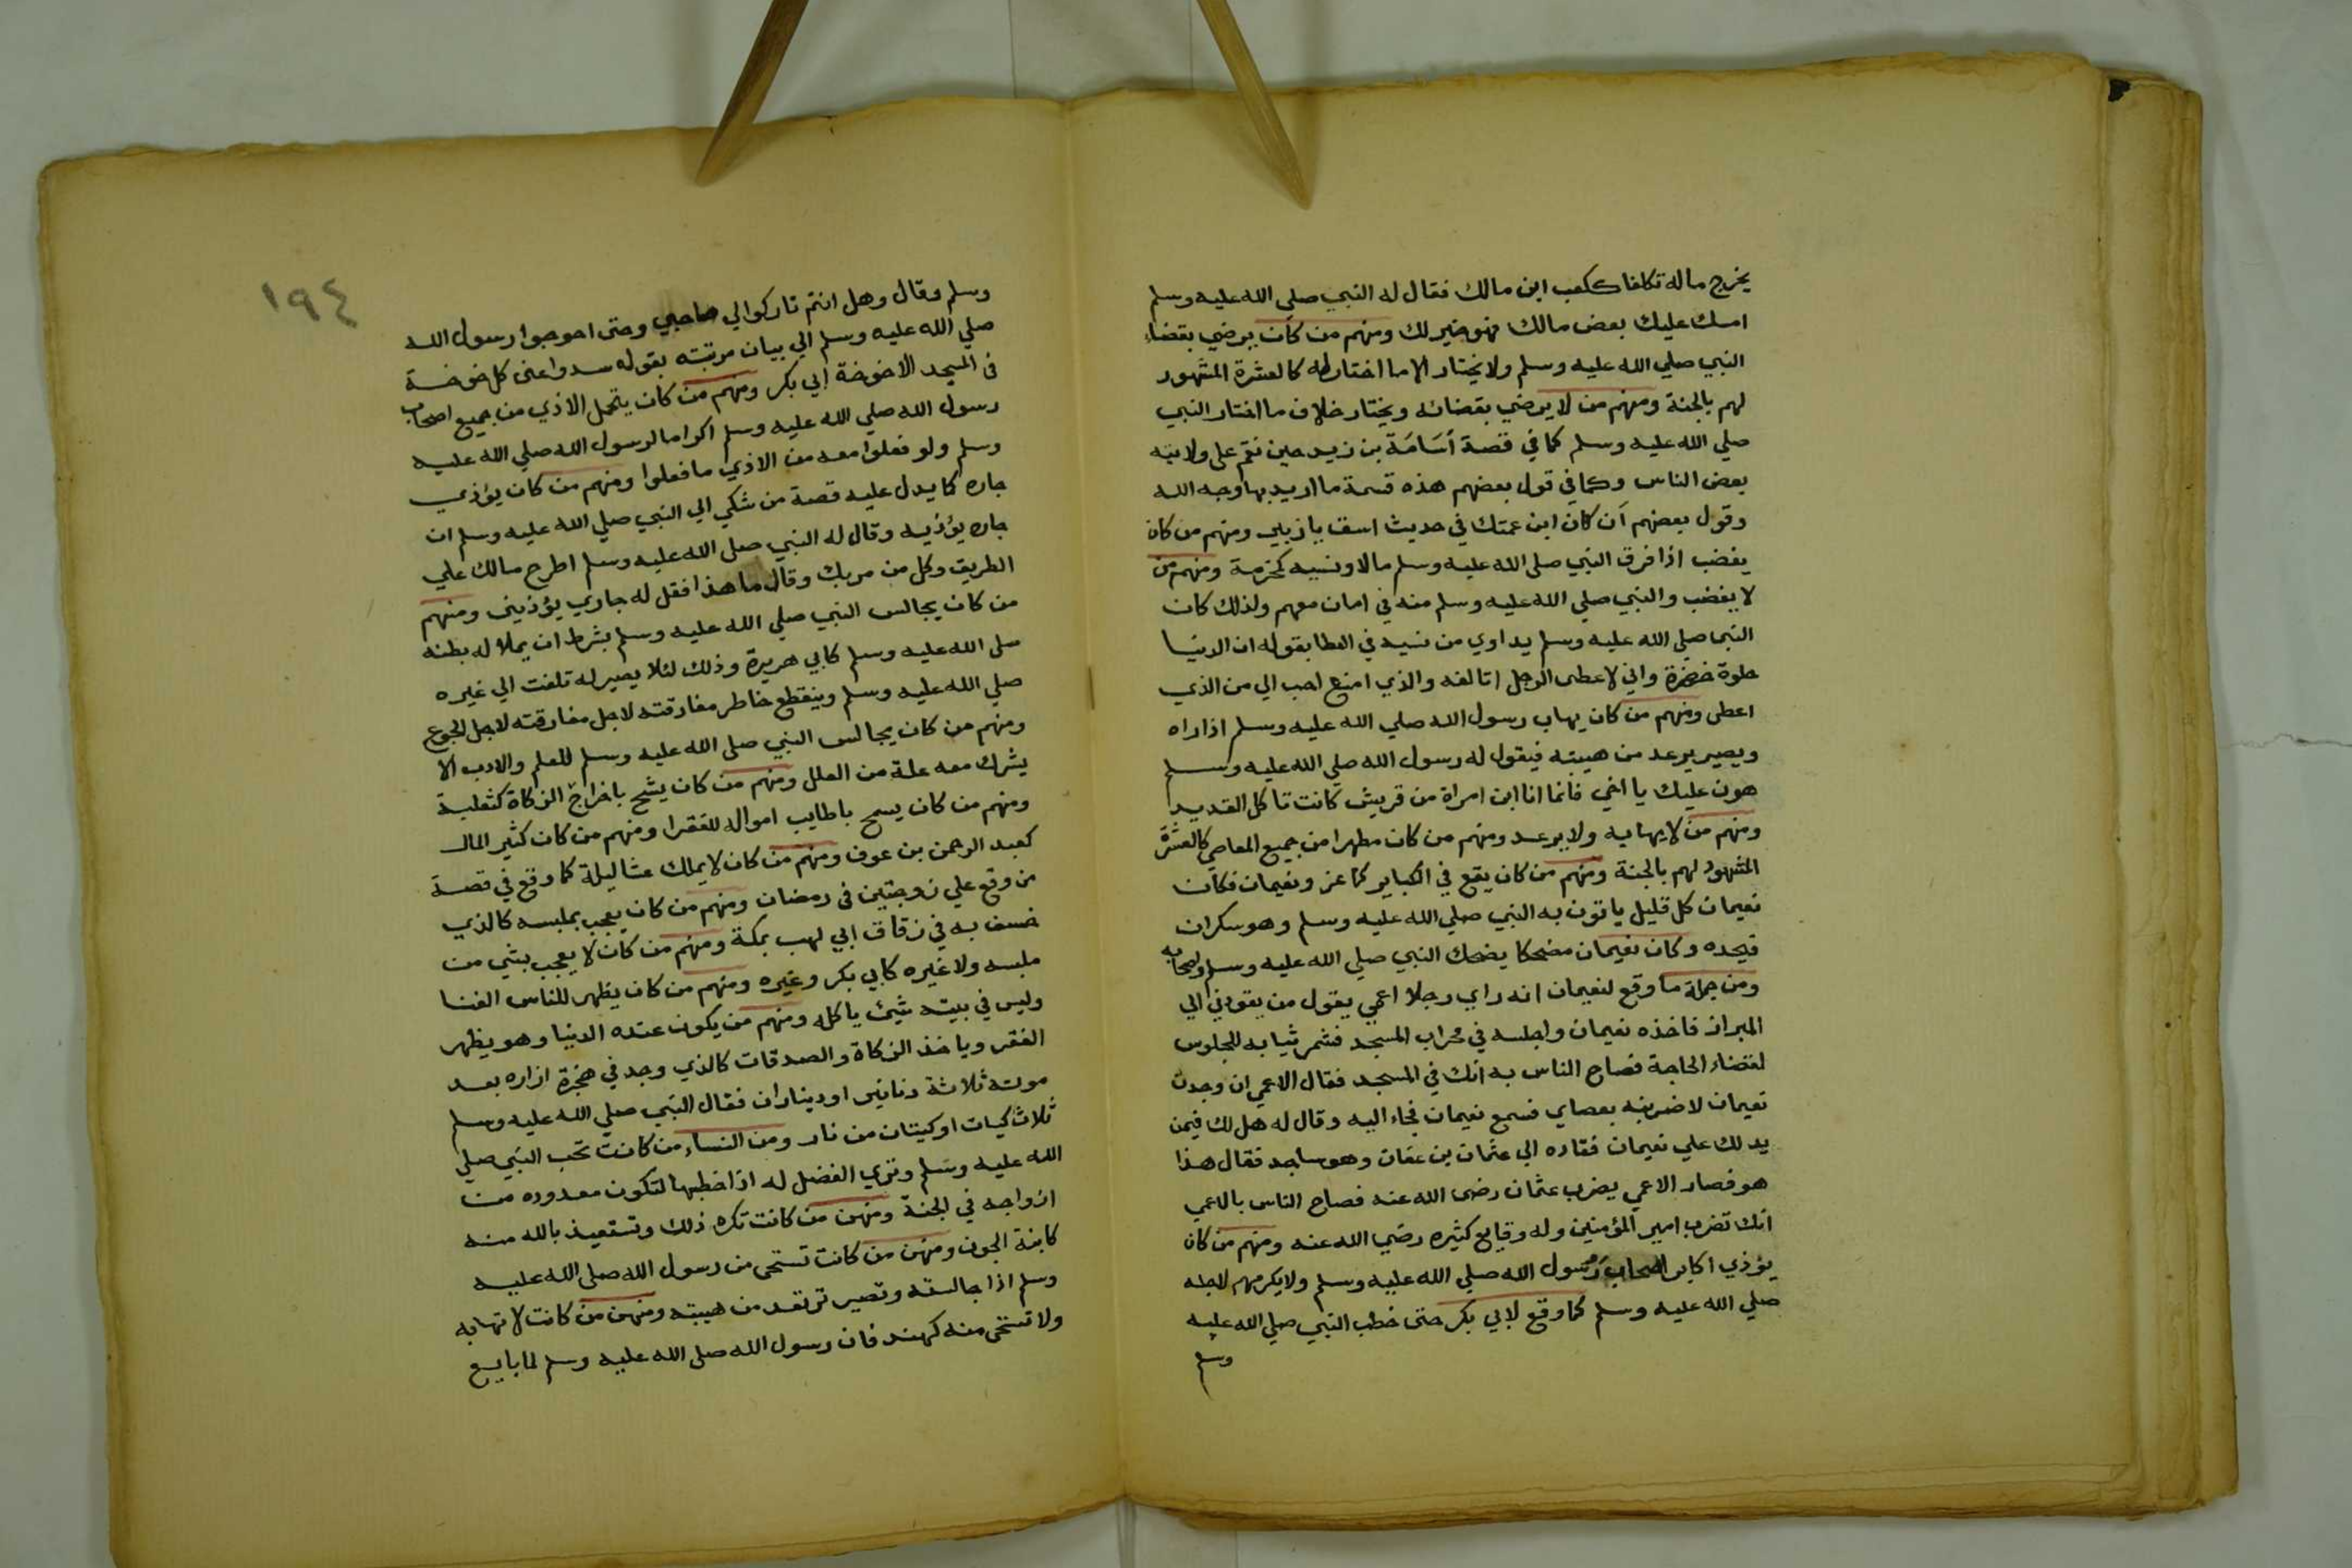 يخرج ماله تكلفا ككعب ابن مالك فقال له النبي صلي الله عليه وسلم
امسك عليك بعض مالك فهو خير لك ومنهم من كان يرضي بقضاء
النبي صلي الله عليه وسلم ولا يختار الا ما اختار له كالعشرة المشهود
لهم بالجنة ومنهم من لا يرضي بقضائه ويختار خلاف ما اختار النبي
صلي الله عليه وسلم كما في قصة أسَامَة بن زيد حين نقم على ولايته
بعض الناس وكما في قول بعضهم هذه قسمة ما اريد بها وجه الله
وقول بعضهم أن كان ابن عمتك في حديث اسق يا زبير ومنهم من كان
يغضب اذا فرق النبي صلى الله عليه وسلم مالا ونسيه كمخرمة ومنهم من
لا يغضب والنبي صلي الله عليه وسلم منه في امان معهم ولذلك كان
النبي صلي الله عليه وسلم يداوي من نسيه في العطا بقوله ان الدنيا
حلوة خضرة واني لاعطى الرجل اتالفه والذي امنع احب الي من الذي
اعطى ومنهم من كان يهاب رسول الله صلي الله عليه وسلم اذا راه
ويصير يرعد من هيبته فيقول له رسول الله صلي الله عليه وسلم
هون عليك يا اخي فانما انا ابن امراة من قريش كانت تاكل القديد
ومنهم من لا يهابه ولا يرعد ومنهم من كان مطهرا من جميع المعاصي كالعشرة
المشهود لهم بالجنة ومنهم من كان يقع في الكباير كماعز ونعيمان فكان
نعيمان كل قليل ياتون به النبي صلي الله عليه وسلم وهو سكران
فيحده وكان نعيمان مضحكا يضحك النبي صلي الله عليه وسلم واصحابه
ومن جملة ما وقع لنعيمان انه راي رجلا اعمي يقول من يقودني الي
البراز فاخذه نعيمان واجلسه في محراب المسجد فشمر ثيابه للجلوس
لقضاء الحاجة فصاح الناس به انك في المسجد فقال الاعمي ان وجدت
نعيمان لاضربنه بعصاي فسمع نعيمان فجاء اليه وقال له هل لك فيمن
يدلك علي نعيمان فقاده الي عثمان بن عفان وهو ساجد فقال هذا
هو فصار الاعمي يضرب عثمان رضى الله عنه فصاح الناس بالاعمي
انك تضرب امير المؤمنين وله وقايع كثيره رضي الله عنه ومنهم من كان
يؤذي اكابر اصحاب رسول الله صلي الله عليه وسلم ولا يكرمهم لاجله
صلي الله عليه وسلم كما وقع لابي بكر حتى خطب النبي صلي الله عليه
وسلم
١٩٤
وسلم وقال وهل انتم تاركوا لي صاحبي وحتى احوجوا رسول الله
صلي الله عليه وسلم الي بيان مرتبته بقوله سدوا عنى كل خوخة
في المسجد الا خوخة ابي بكر ومنهم من كان يتحمل الاذي من جميع اصحاب
رسول الله صلي الله عليه وسلم اكراما لرسول الله صلي الله عليه
وسلم ولو فعلوا معه من الاذي ما فعلوا ومنهم من كان يؤذي
جاره كما يدل عليه قصة من شكي الي النبي صلي الله عليه وسلم ان
جاره يؤذيه وقال له النبي صلي الله عليه وسلم اطرح مالك علي
الطريق وكل من مر بك وقال ما هذا فقل له جاري يؤذيني ومنهم
من كان يجالس النبي صلي الله عليه وسلم بشرط ان يملا له بطنه
صلى الله عليه وسلم كابي هريرة وذلك لئلا يصير له تلفت الي غيره
صلي الله عليه وسلم وينقطع خاطر مفارقته لاجل مفارقته لاجل الجوع
ومنهم من كان يجالس النبي صلى الله عليه وسلم للعلم والادب لا
يشرك معه علة من العلل ومنهم من كان يشح باخراج الزكاة كثعلبة
ومنهم من كان يسمح باطايب امواله للفقرا ومنهم من كان كثير المال
كعبد الرحمن بن عوف ومنهم من كان لا يملك عشا ليلة كما وقع في قصة
من وقع علي زوجتين في رمضان ومنهم من كان يعجب بملبسه كالذي
خسف به في زقاق ابي لهب بمكة ومنهم من كان لا يعجب بشي من
ملبسه ولا غيره كابي بكر وغيره ومنهم من كان يظهر للناس الغنا
وليس في بيته شيئ ياكله ومنهم من يكون عنده الدنيا وهو يظهر
الفقر وياخذ الزكاة والصدقات كالذي وجد في حجزة ازاره بعد
موته ثلاثة دنانير او ديناران فقال النبي صلي الله عليه وسلم
ثلاث كيات او كيتان من نار ومن النساء من كانت تحب النبي صلي
الله عليه وسلم وتري الفضل له اذا خطبها لتكون معدوده من
ازواجه في الجنة ومنهن من كانت تكره ذلك وتستعيذ بالله منه
كابنة الجون ومنهن من كانت تستحي من رسول الله صلى الله عليه
وسلم اذا جالسته وتصير ترتعد من هيبته ومنهن من كانت لا تهابه
ولا تستحى منه كهند فان رسول الله صلى الله عليه وسلم لما بايع